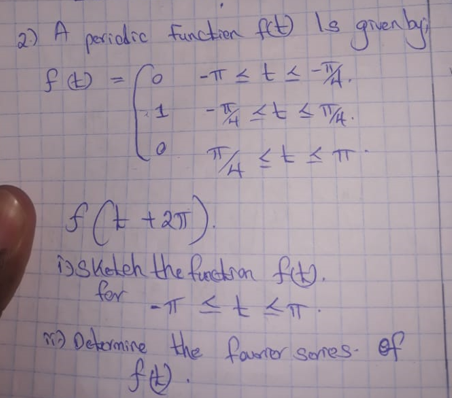 2) A periodic function f(t) Is given by;
f(t) = { 0 -π ≤ t ≤ -π/4.
1 -π/4 ≤ t ≤ π/4.
0 π/4 ≤ t ≤ π.
f(t + 2π).
i) Sketch the function f(t).
for -π ≤ t ≤ π.
ii) Determine the fourier series of
f(t).